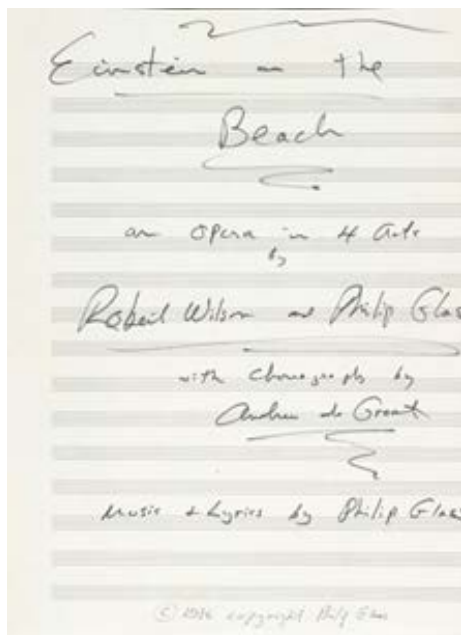 Einstein on the
Beach
an opera in 4 Acts
by
Robert Wilson and Philip Glass
with choreography by
Andrew de Groat
Music + Lyrics by Philip Glass
© 1976 copyright Philip Glass